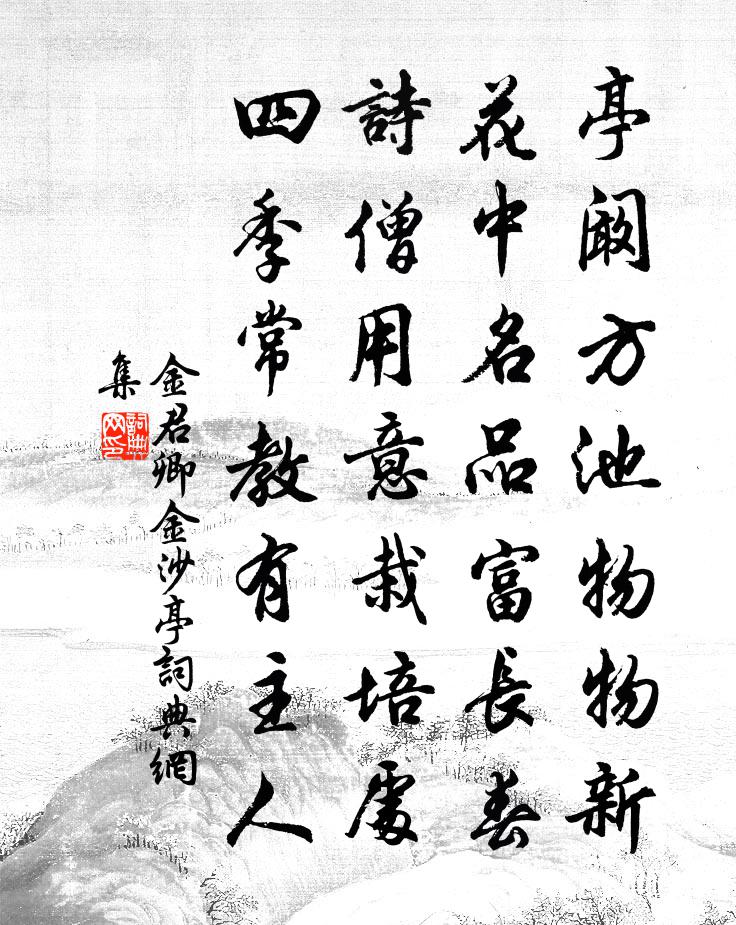 亭闞方池物物新
花中名品富長春
詩僧用意栽培處
四季常教有主人
金君卿金沙亭詞典網
集
詞典網印